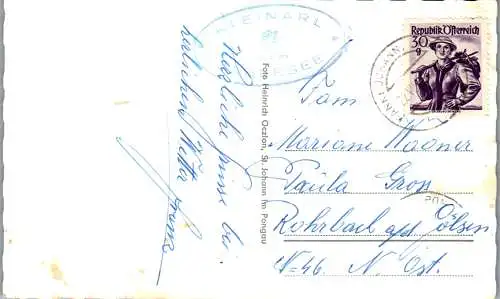 KLEINARL
SEE
Herzliche Grüsse bei
herrlichem Wetter
Foto Heinrich Oczlon, St. Johann im Pongau
Republik Österreich
30
g
JOHANN
Fam
Mariane Wagner
Paula Gros
Rohrbach a/d Gölsen
N=46. N. Öst.